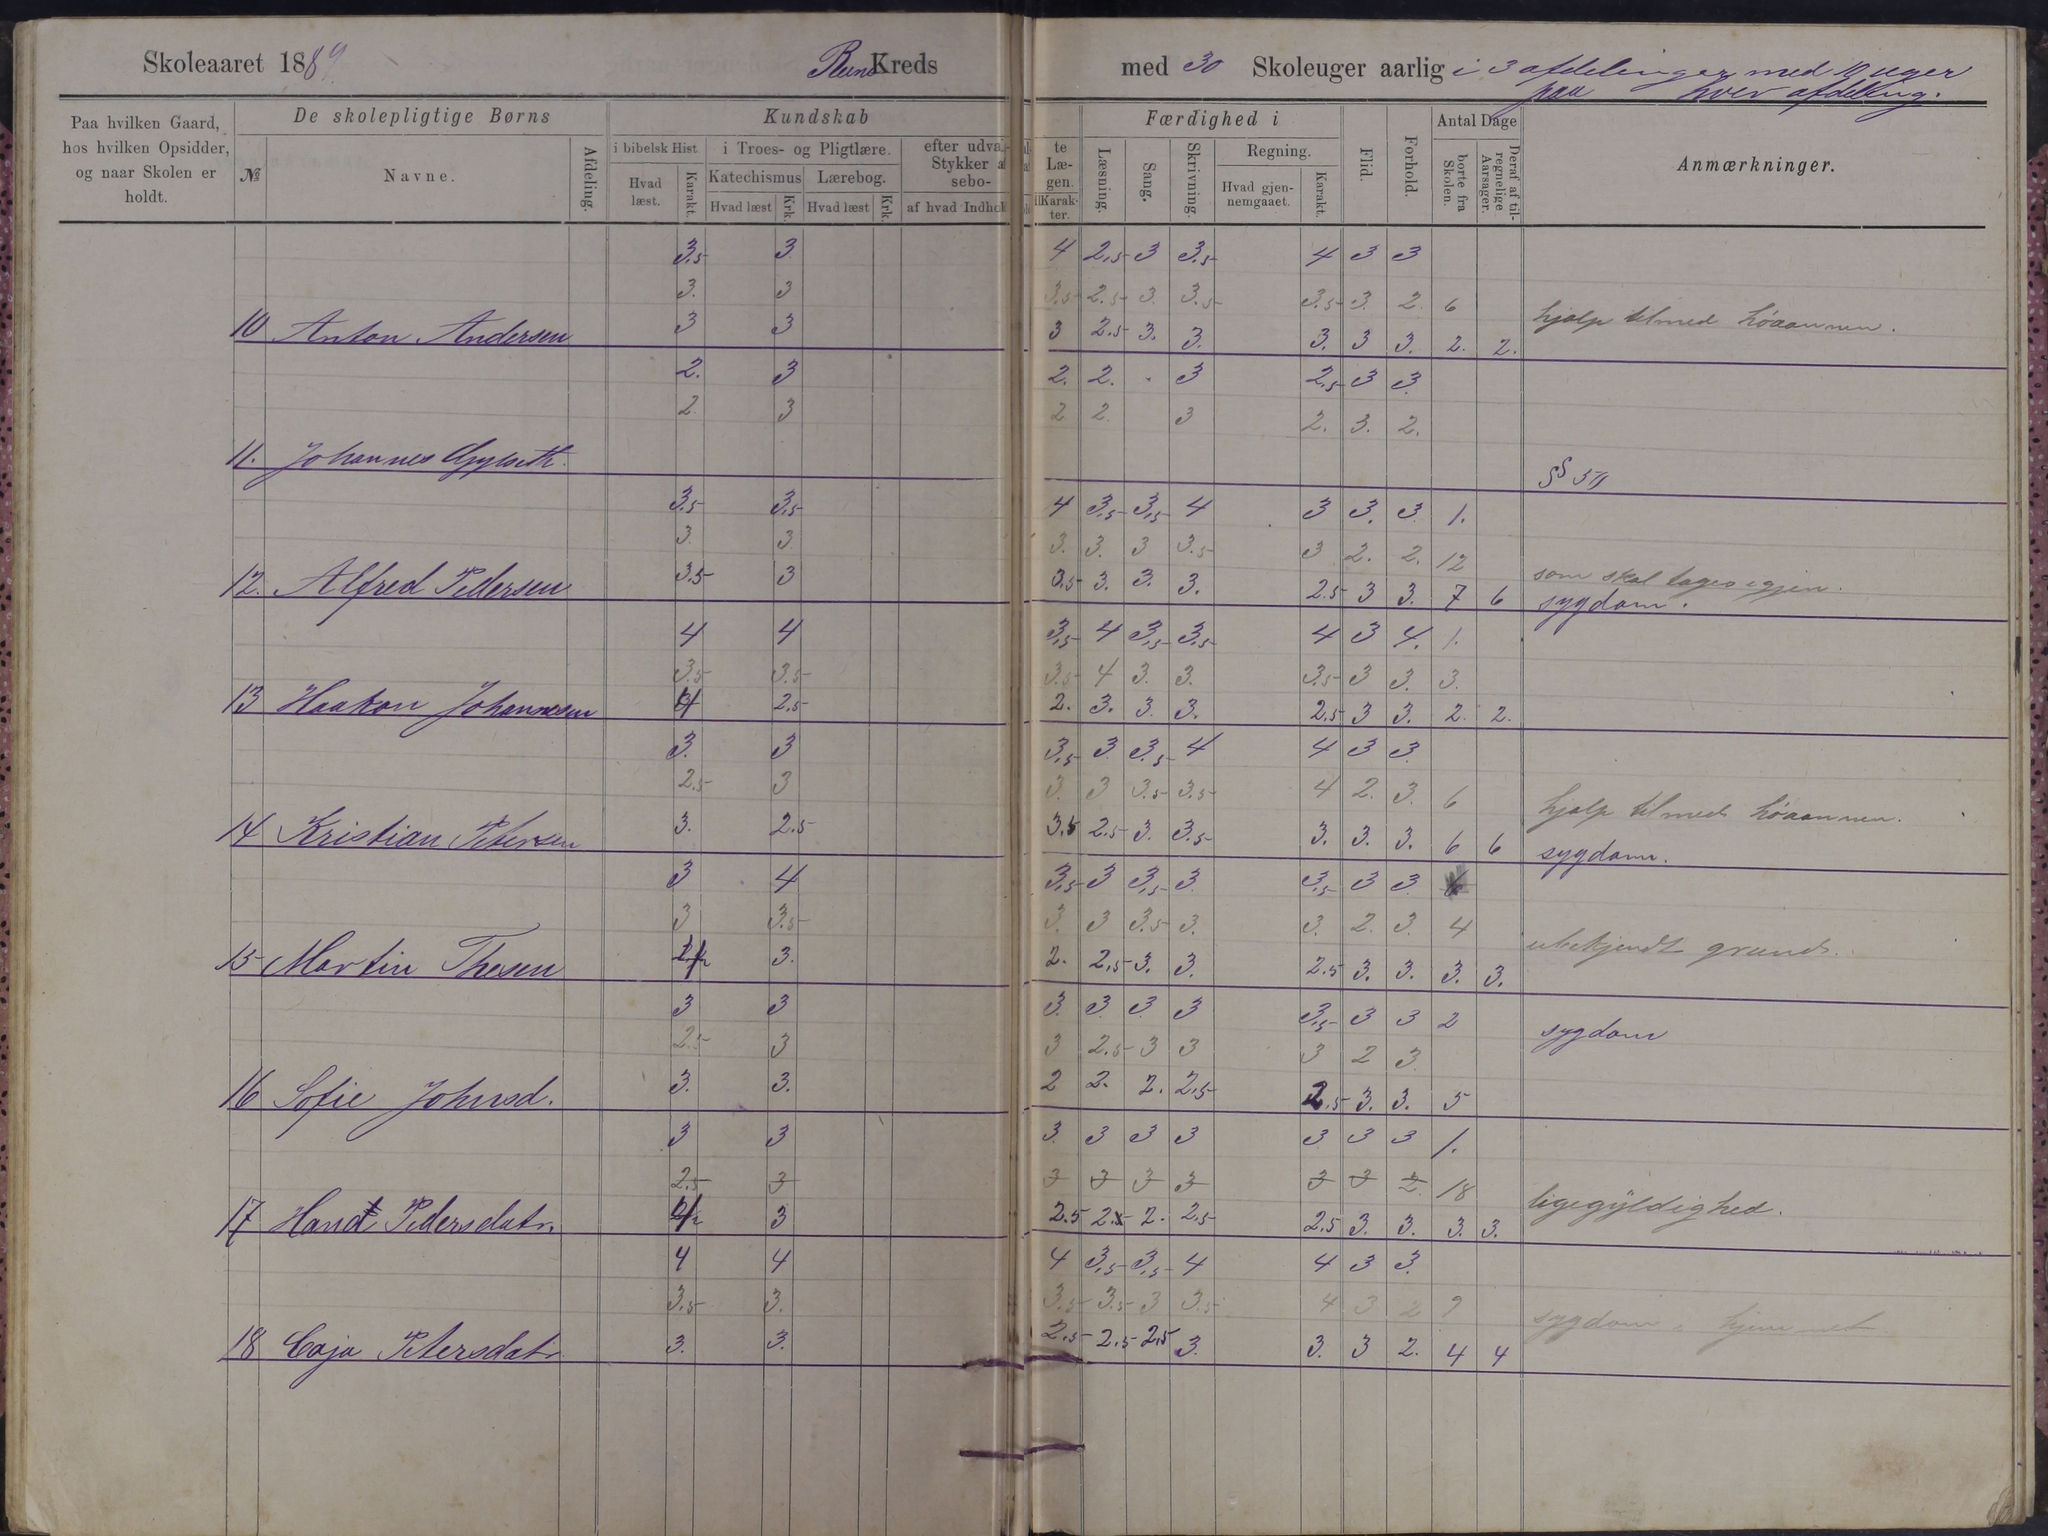 Skoleaaret 1889. Kreds med 30 Skoleuger aarlig i 3 afdelinger med 10 uger
paa hver afdeling.
Paa hvilken Gaard, hos hvilken Opsidder, og naar Skolen er holdt.
De skolepligtige Børns
№ Navne. Afdeling.
Kundskab
i bibelsk Hist. Hvad læst. Karakt.
i Troes- og Pligtlære.
Katechismus Hvad læst Krk.
Lærebog. Hvad læst Krk.
efter udva Stykker a sebo- af hvad Indhol
te Læ- gen. Karak- ter.
Færdighed i
Læsning. Sang. Skrivning.
Regning. Hvad gjen- nemgaaet. Karakt.
Flid. Forhold.
Antal Dage
borte fra Skolen. Deraf af til- regnelige Aarsager.
Anmærkninger.
3.5 3 4 2.5 3 3.5 4 3 3
3. 3 3.5 2.5 3. 3.5 3.5 3. 2. 6 hjalp til med høaannen.
10 Anton Andersen 3 3 3 2.5 3. 3. 3. 3 3. 2. 2.
2. 3 2. 2. . 3 2.5 3 3.
2 3 2 2. 3 2. 3. 2.
11. Johannes §§ 5
3.5 3.5 4 3.5 3.5 4 3 3. 3. 1.
3. 3 3. 3. 3 3.5 3 2. 2. 12 som skal tages igjen.
12. Alfred Pedersen 3.5 3 3.5 3. 3. 3. 2.5 3 3. 7 6 sygdom.
4 4 3.5 4 3.5 3.5 4 3 4. 1.
3.5 3.5 3.5 4 3. 3. 3.5 3 3. 3.
13 Haakon Johannesen 2.5 2. 3. 3. 3. 2.5 3 3. 2. 2.
3. 3 3.5 3 3.5 4 4 3 3.
2.5 3 3. 3 3.5 3.5 4 2. 3. 6 hjalp til med høaannen.
14 Kristian Petersen 3. 2.5 3.5 2.5 3. 3.5 3. 3. 3. 6 6 sygdom.
3 4 3.5 3 3.5 3. 3.5 3 3.
3 3.5 3. 3 3.5 3. 3. 2. 3. 4 ubekjendt grund.
15 Martin Thesen 3. 2. 2.5 3. 3. 2.5 3. 3. 3. 3.
3 3 3. 3. 3 3 3.5 3 3 2 sygdom
2.5 3 3 2.5 3 3 3 2 3.
16 Sofie Johnsd. 3. 3. 2 2. 2. 2.5 2.5 3. 3. 5
3 3 3. 3 3 3 3 3 3 1.
2.5 3 3 3 3 3 3 3 2. 18 ligegyldighed.
17 Pedersdatr. 3 2.5 2.5 2. 2.5 2.5 3. 3. 3. 3.
4 4 4 3.5 3.5 4 4 3 3.
3.5 3. 3.5 3.5 3 3.5 4 3 2 9 sygdom i hjemmet
18 Caja Petersdatr. 3. 3. 2.5 2.5 2.5 3. 3. 3 2. 4 4